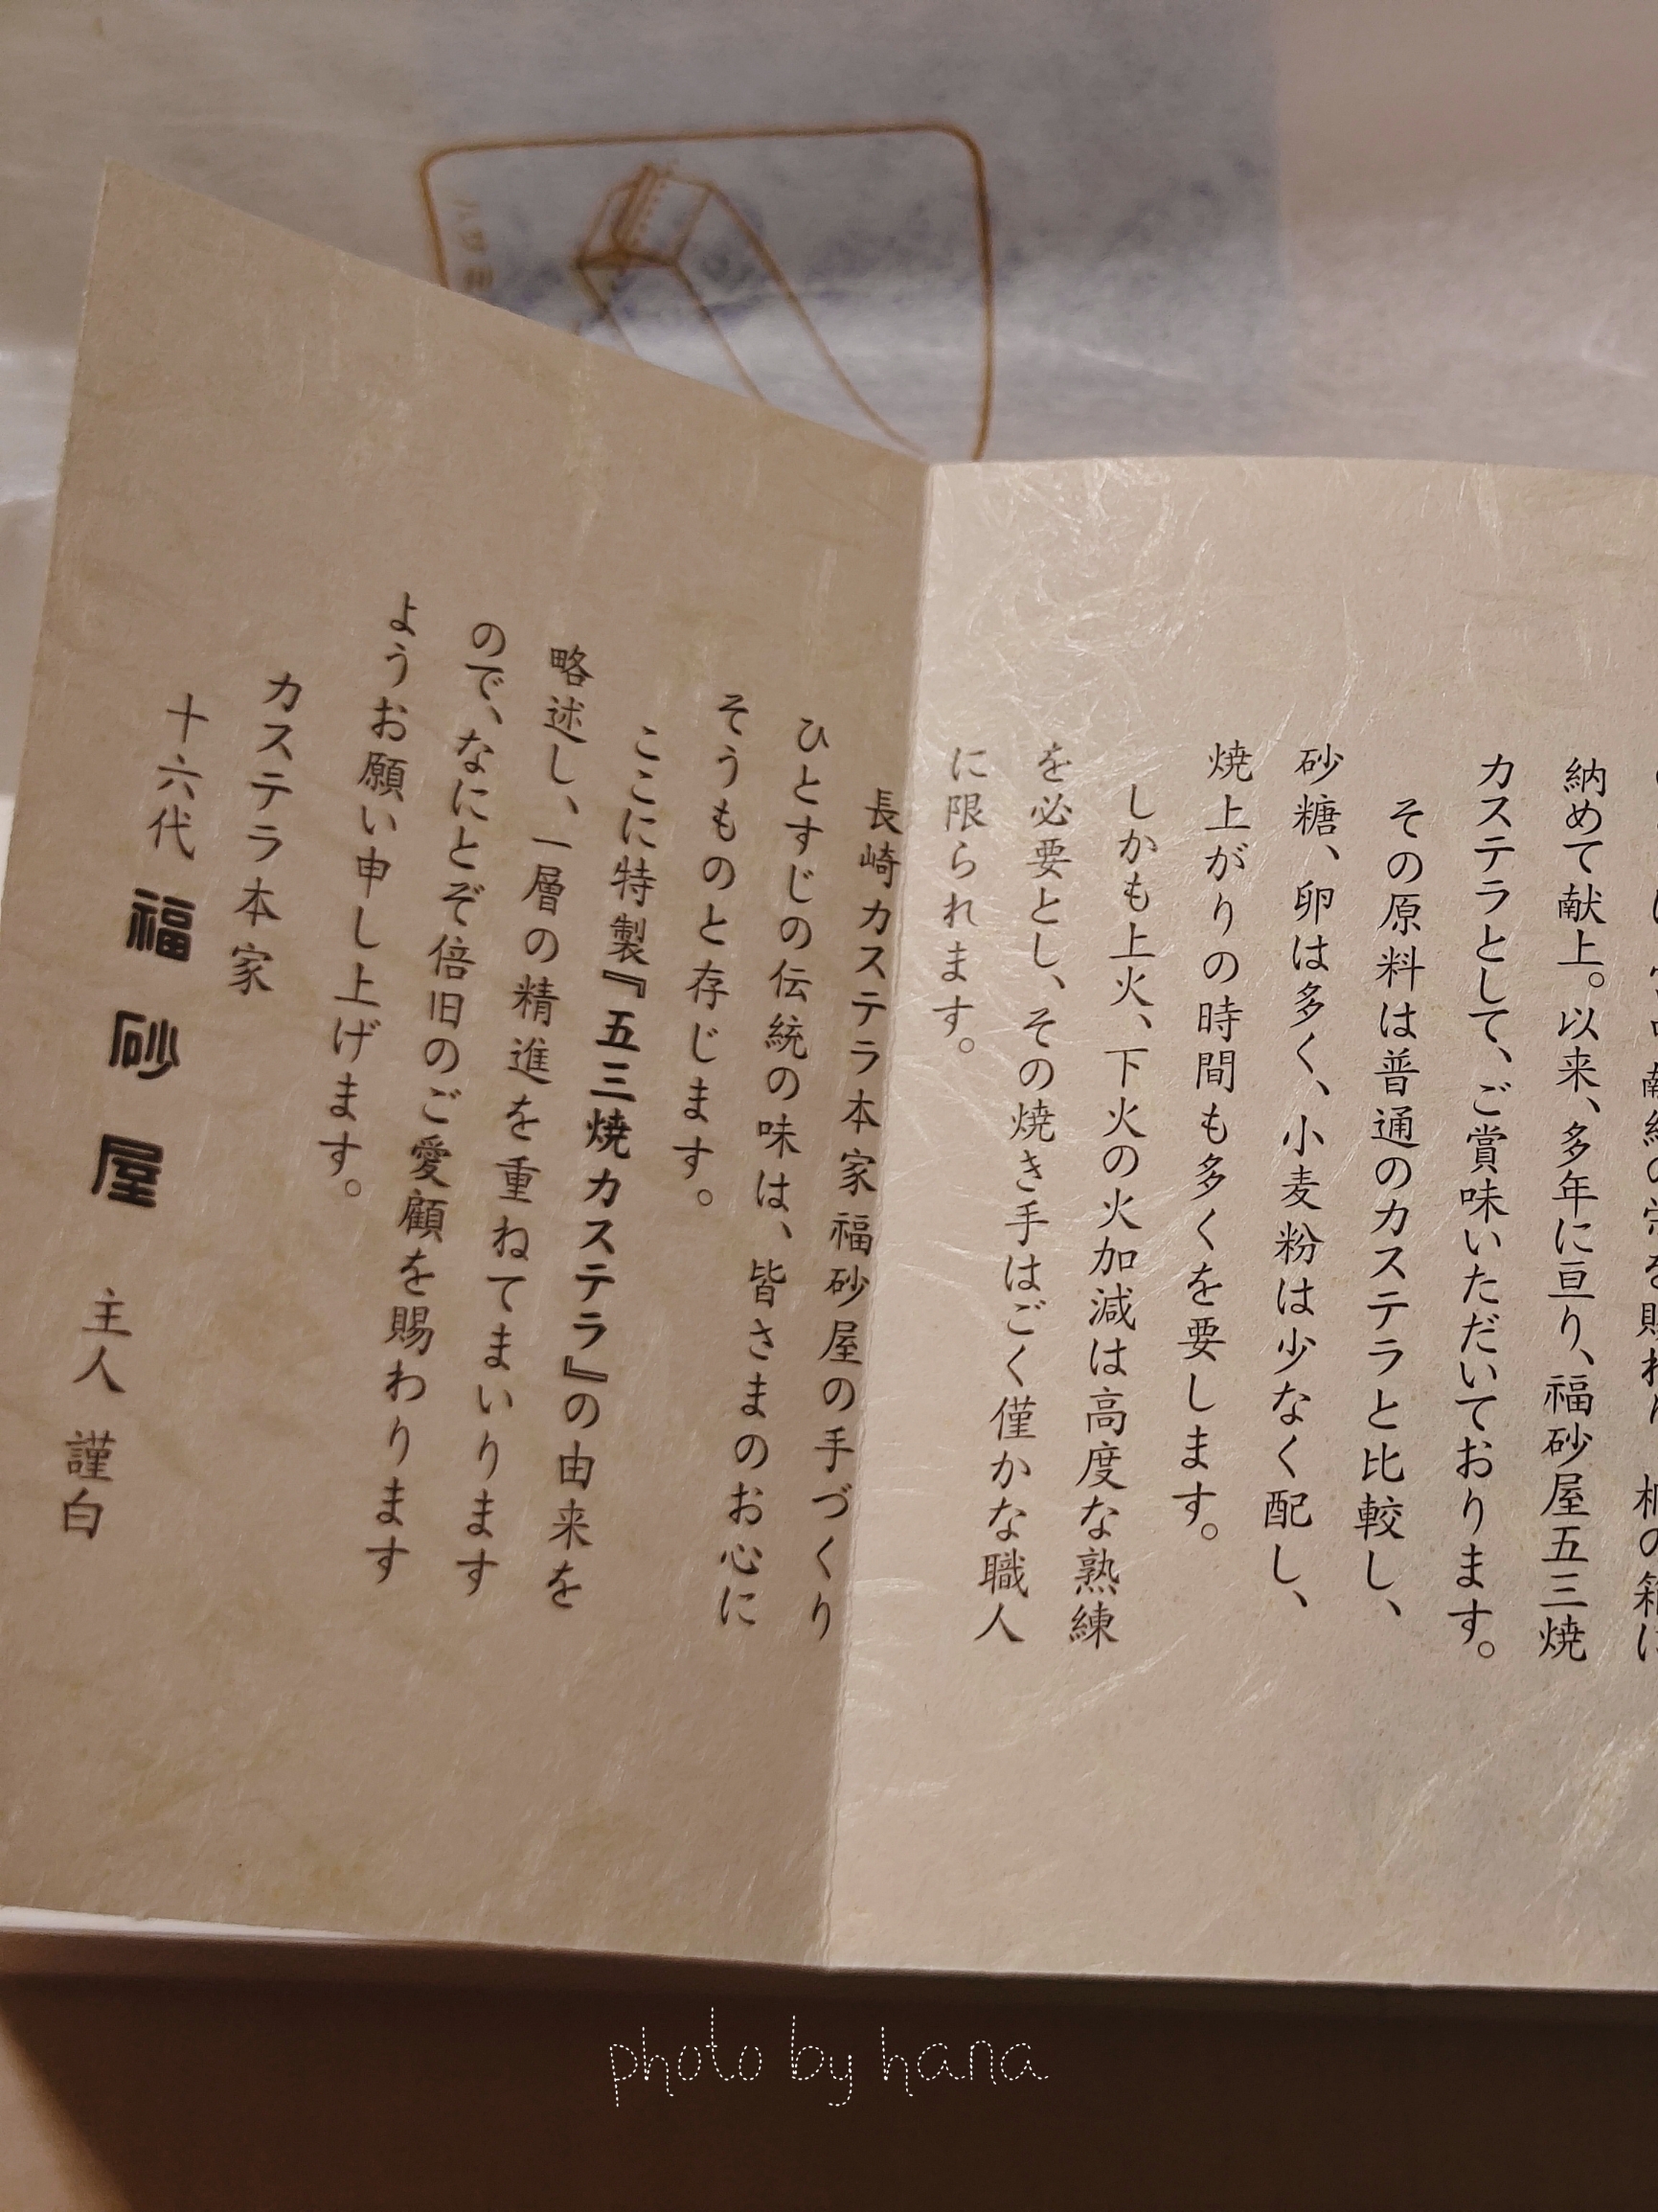 納めて献上。以来、多年に亘り、福砂屋五三焼
カステラとして、ご賞味いただいております。
その原料は普通のカステラと比較し、
砂糖、卵は多く、小麦粉は少なく配し、
焼上がりの時間も多くを要します。
しかも上火、下火の火加減は高度な熟練
を必要とし、その焼き手はごく僅かな職人
に限られます。
長崎カステラ本家福砂屋の手づくり
ひとすじの伝統の味は、皆さまのお心に
そうものと存じます。
ここに特製『五三焼カステラ』の由来を
略述し、一層の精進を重ねてまいります
ので、なにとぞ倍旧のご愛顧を賜わります
ようお願い申し上げます。
カステラ本家
十六代 福砂屋 主人 謹白
photo by hana